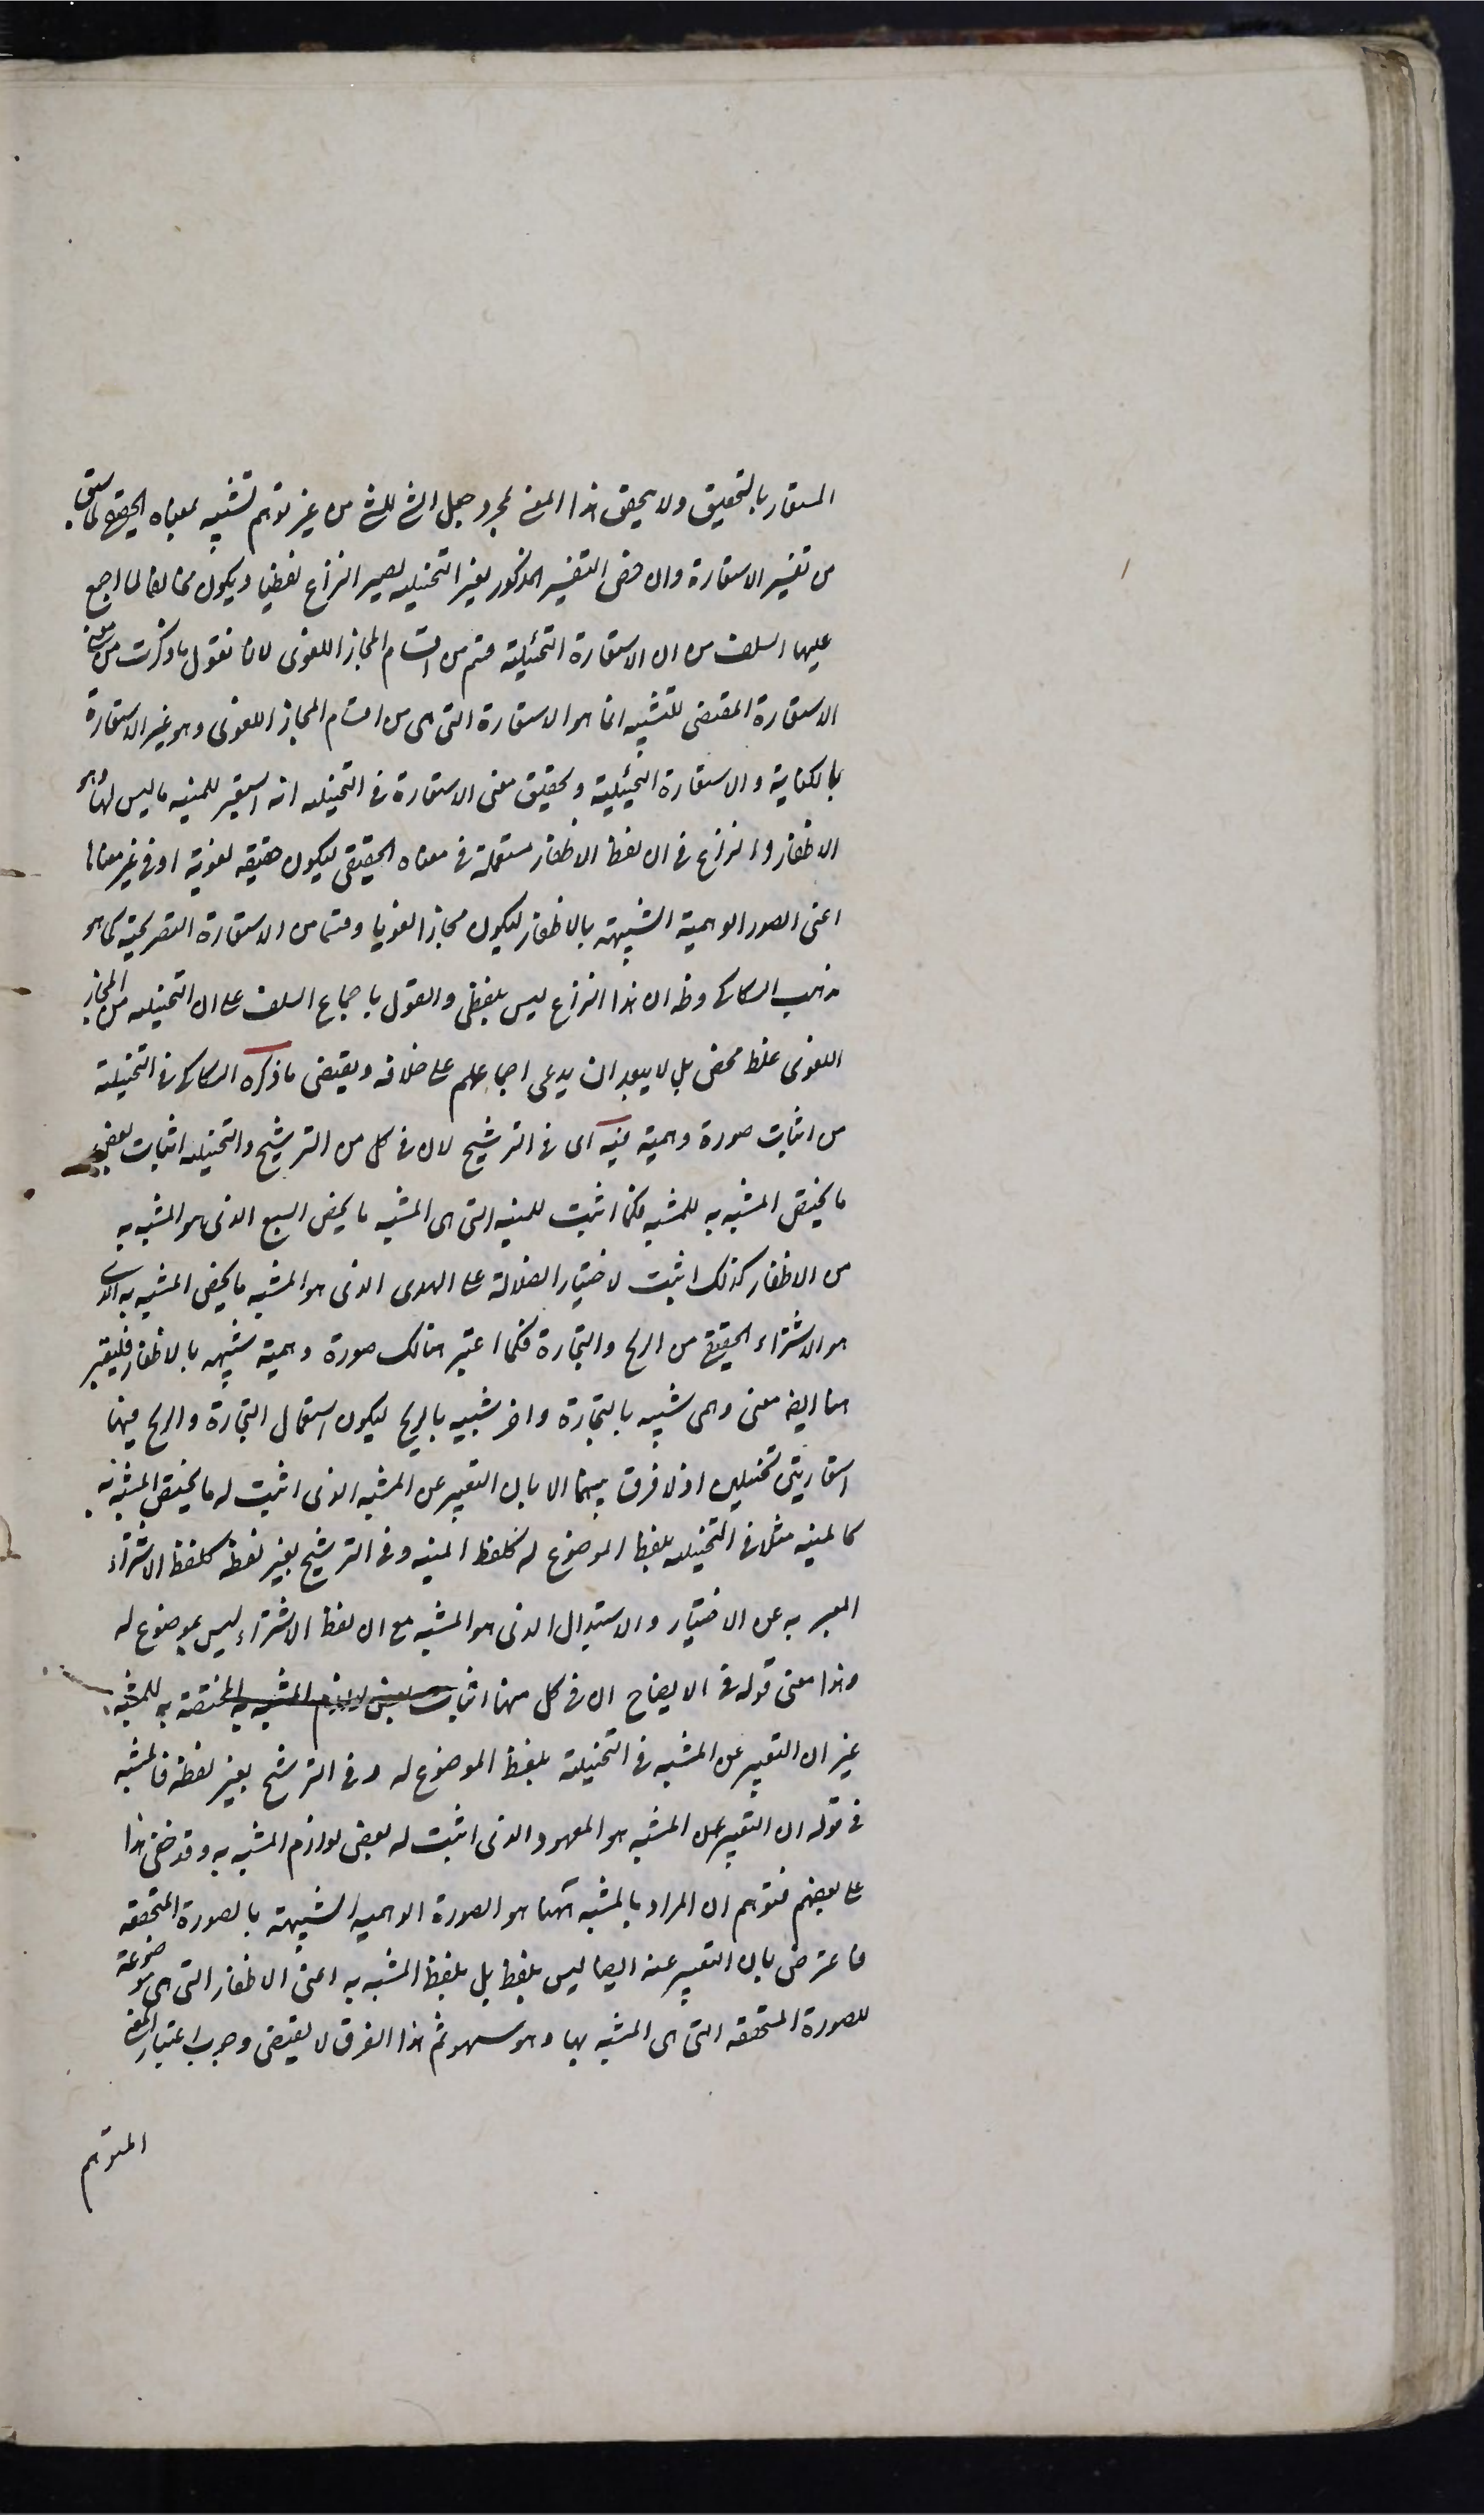 المستعار بالتحقيق ولا يتحقق هذا المعنى بمجرد جعل الشئ للشئ من غير توهم تشبيه بمعناه الحقيقي لما سبق
من تفسير الاستعارة وان خص التفسير المذكور بغير التخييليه يصير النزاع لفظيا ويكون مخالفا لما اجمع
عليه السلف من ان الاستعارة التخييلية قسم من اقسام المجاز اللغوى لانا نقول ما ذكرت من معنى
الاستعارة المقتضى للتشبيه انما هو الاستعارة التى هى من اقسام المجاز اللغوى وهو غير الاستعارة
بالكناية والاستعارة التخييلية وتحقيق معنى الاستعارة فى التخييليه انه استعير للمنيه ما ليس لها وهو
الاظفار والنزاع فى ان لفظ الاظفار مستعملة فى معناه الحقيقى ليكون حقيقه لغوية او فى غير معناها
اعنى الصور الوهمية الشبيهة بالاظفار ليكون مجازا لغويا وقسما من الاستعارة التصريحية كما هو
مذهب السكاكى وظ ان هذا النزاع ليس بلفظى والقول باجماع السلف على ان التخييليه من المجاز
اللغوى غلط محض بل لا يبعد ان يدعى اجماعهم على خلافه ويقتضى ما ذكره السكاكى فى التخييلية
من اثبات صورة وهمية فيه اى فى الترشيح لان فى كل من الترشيح والتخييليه اثبات بعض
ما يختص المشبه به للمشبه فكما اثبت للمنيه التى هى المشبه ما يخص السبع الذى هو المشبه به
من الاظفار كذلك اثبت لاختيار الضلالة على الهدى الذى هو المشبه ما يخص المشبه به الذى
هو الاشتراء الحقيقى من الربح والتجارة فكما اعتبر هنالك صورة وهمية شبيهه بالاظفار فليعتبر
هنا ايضا معنى وهمى شبيه بالتجارة واخر شبيه بالربح ليكون استعمال التجارة والربح فيهما
استعارتين تخييليين اذ لا فرق بينهما الا بان التعبير عن المشبه الذى اثبت له ما يختص المشبه به
كالمنيه مثلا فى التخييليه بلفظ الموضوع له كلفظ المنيه وفى الترشيح بغير لفظه كلفظ الاشتراء
المعبر به عن الاختيار والاستبدال الذى هو المشبه مع ان لفظ الاشتراء ليس بموضوع له
وهذا معنى قوله فى الايضاح ان فى كل منهما اثبات بعض لوازم المشبه به المختصة به للمشبه
غير ان التعبير عن المشبه فى التخييلية بلفظ الموضوع له وفى الترشيح بغير لفظه فالمشبه
فى قوله ان التعبير عن المشبه هو المعهود الذى اثبت له بعض لوازم المشبه به وقد خفى هذا
على بعضهم فتوهم ان المراد بالمشبه ههنا هو الصورة الوهميه الشبيهة بالصورة المتحققه
فاعترض بان التعبير عنه ايضا ليس بلفظه بل بلفظ المشبه به اعنى الاظفار التى هى موضوعة
للصورة المتحققه التى هى المشبه بها وهو سهو ثم هذا الفرق لا يقتضى وجوب اعتبار المعنى
المتوهم